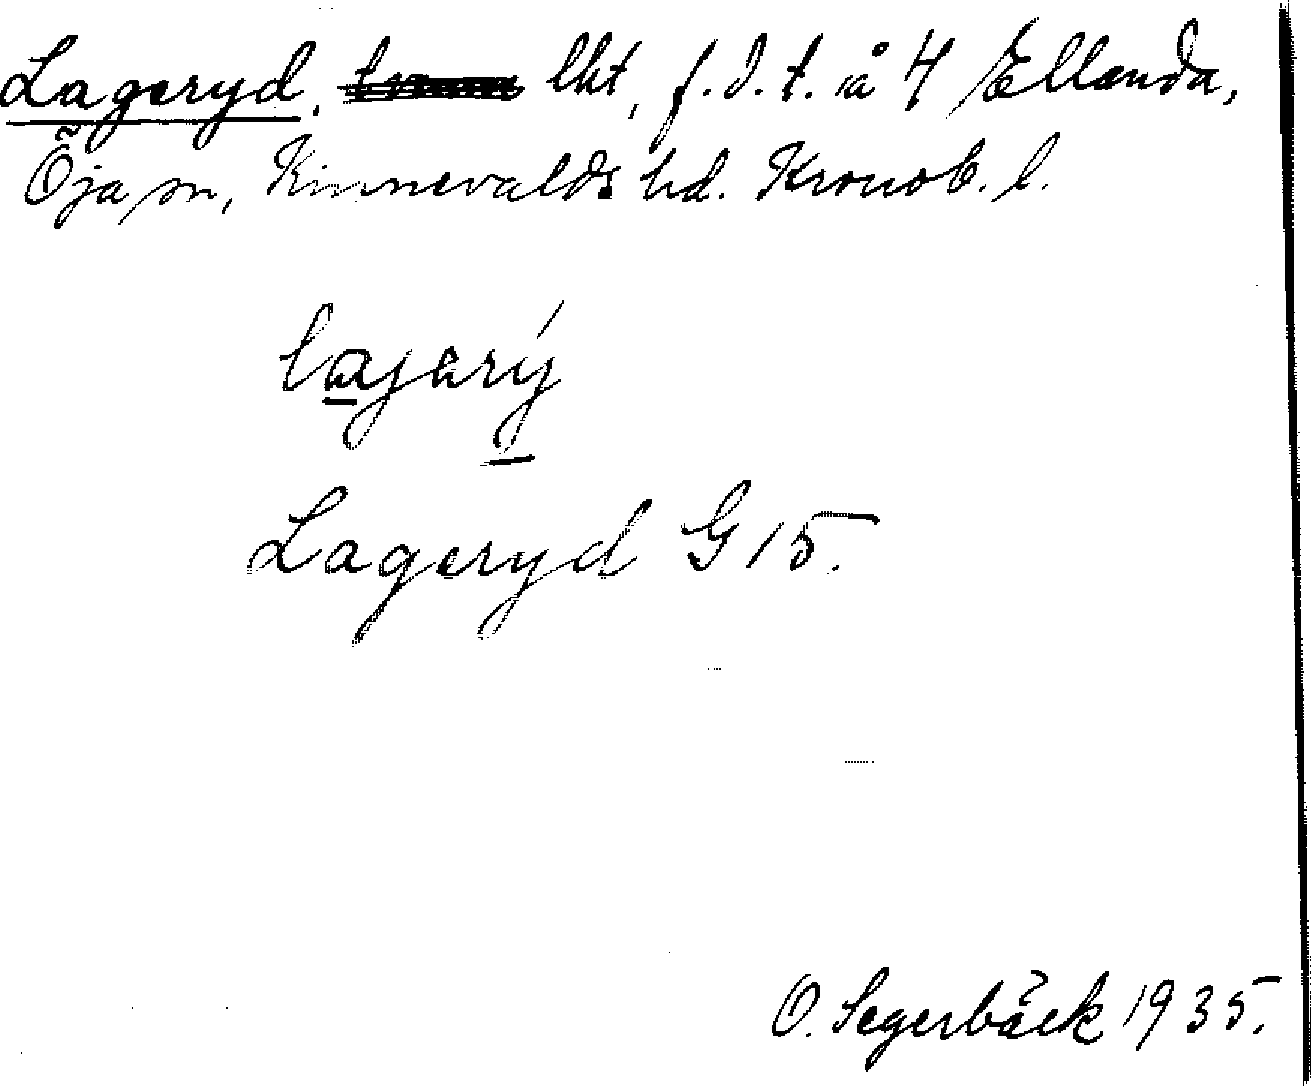 Lageryd, lht, f.d.t. å 4 Ellanda,
Öja sn, Kinnevalds hd. Kronob. l.
lagarý
Lageryd G 15.
O. Segerbäck 1935.